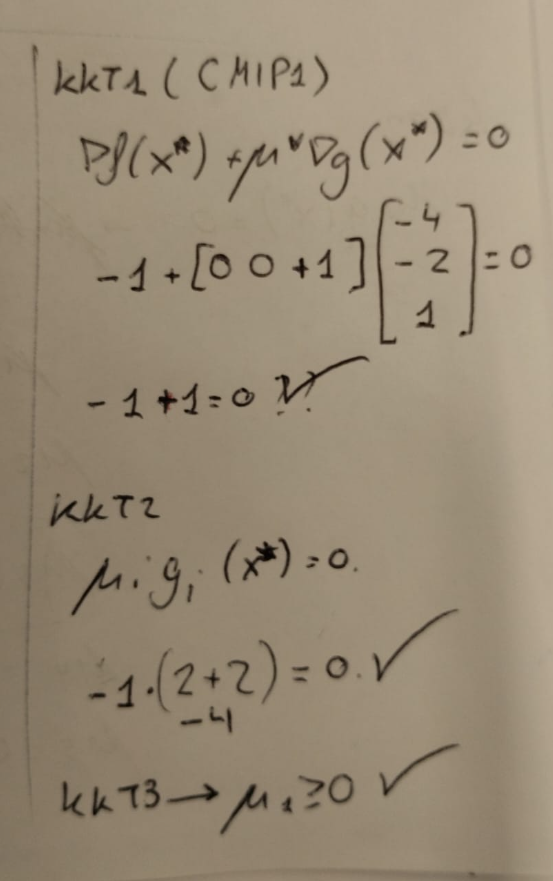 KKT1 (CMIP1)
∇f(x*) + μ*∇g(x*) = 0
-1 + [0 0 +1] [-4 -2 1] = 0
-1 + 1 = 0 ✓
KKT2
μᵢgᵢ(x*) = 0.
-1·(2+2) = 0. ✓
-4
KKT3 → μ₁ ≥ 0 ✓